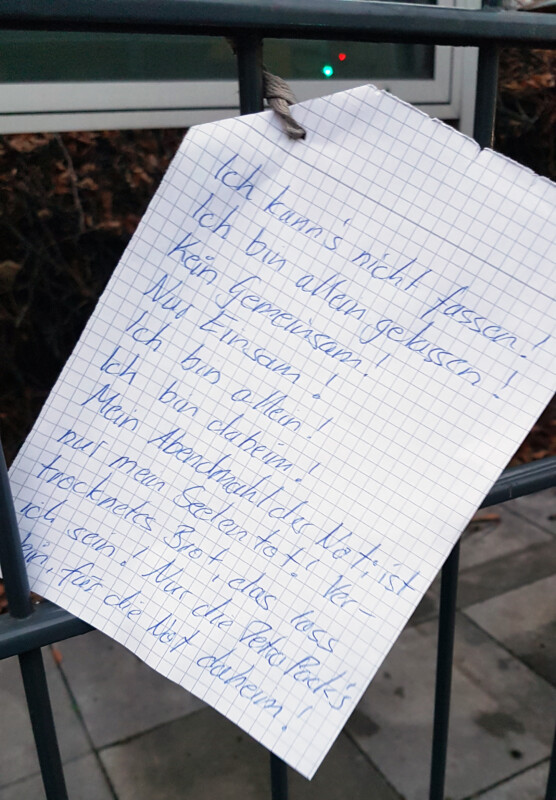 Ich kann's nicht fassen!
Ich bin allein gelassen!
Kein Gemeinsam!
Nur Einsam!
Ich bin allein!
Ich bin daheim!
Mein Abendmahl der Not, ist
nur mein Seelentot! Ver-
trocknetes Brot, das lass
ich sein! Nur die TetraPack's
hin, für die Not daheim!